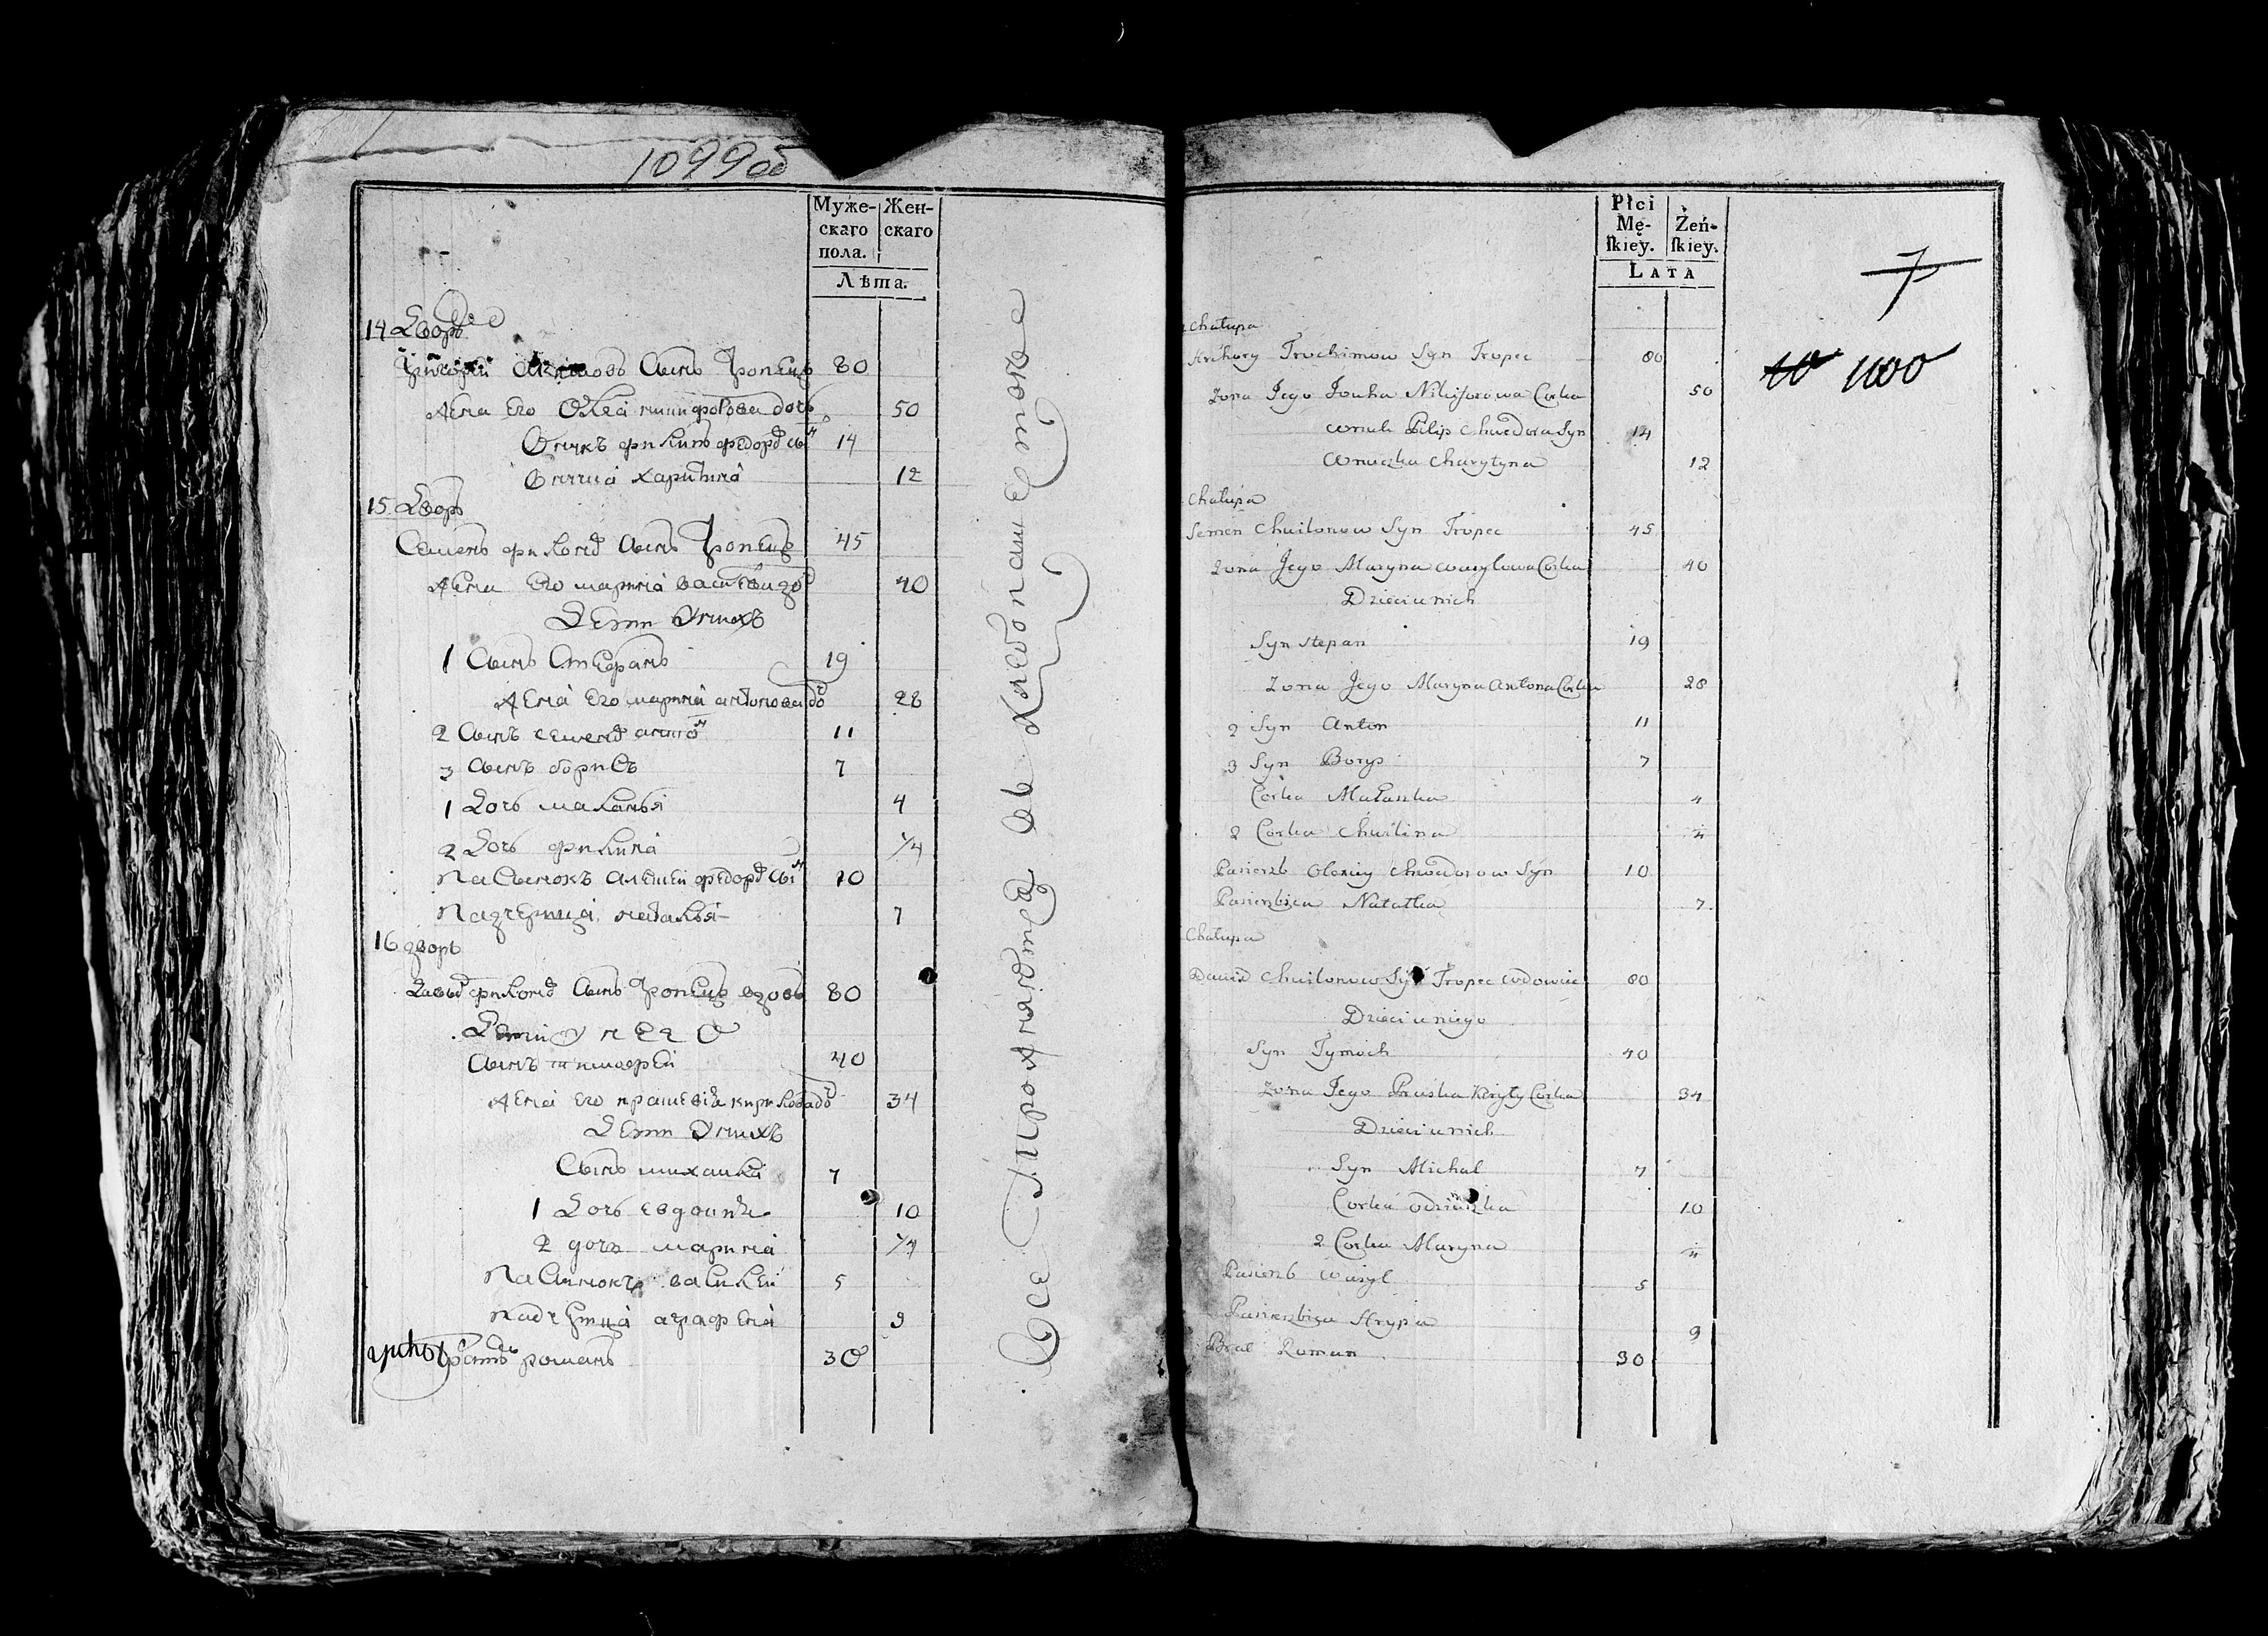 1099 об
Муже- Жен-
скаго скаго
пола.
Лѣта.
14 Дворъ
Григорей сынъ Тропецъ 80
Жена Его никифорова дочь 50
Внукъ филипъ федоровъ сынъ 14
Внучка харитина 12
15 Дворъ
Семенъ филоновъ сынъ Тропецъ 45
Жена Его марина 40
Дети Униихъ
1 Сынъ Стефанъ 19
Жена Его марина антонова до 28
2 Сынъ антонъ 11
3 Сынъ борисъ 7
1 Дочь маланья 4
2 Дочь филина 1/4
Пасынокъ алексей федоровъ сынъ 10
Падчерица наталья 7
16 дворъ
Давыдъ филоновъ Сынъ Тропецъ вдовъ 80
Дети у него
Сынъ тимофей 40
Жена Его прасковia кирилова до 34
Дети Униихъ
Сынъ михаила 7
1 Дочь евдоким 10
2 дочь марина 1/4
Пасынокъ василей 5
Падчерица аграфена 9
братъ романъ 30
Все Проживаютъ въ хлебопашестве
Płci
Mę- Żeń-
ſkiey. ſkiey.
LATA
7
10 1100
Chałupa
Hrihory Trochimow Syn Tropec 80
Zona Jego Jouha Nikiforowa Corka 50
wnuk Filip Chwedora Syn 14
wnuczka Charytyna 12
Chałupa
Semen Chwilonow Syn Tropec 45
Zona Jego Maryna wasylowa Corka 40
Dzieci u nich
Syn stepan 19
Zona Jego Maryna Antona Corka 28
2 Syn Anton 11
3 Syn Borys 7
Corka Małaszka 4
2 Corka Chwilina 1/4
Pasierzb Olexiy Chwedorow Syn 10
Pasierzbica Natałka 7
Chałupa
Dawid Chwilonow Syn Tropec wdowiec 80
Dzieci u niego
Syn Tymoch 40
Zona Jego Pruska Kiryły Corka 34
Dzieci u nich
Syn Michal 7
Corka Odziuszka 10
2 Corka Maryna 1/4
Pasierzb Wasyl 5
Pasierzbica Hrypa 9
Brat Roman 30